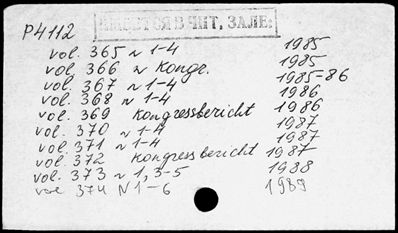 ИМЕЕТСЯ В ЧИТ. ЗАЛЕ.
P4112
vol. 365 N 1-4 1985
vol. 366 N Kongr. 1985
vol. 367 N 1-4 1985-86
vol. 368 N 1-4 1986
vol. 369 Kongressbericht 1986
vol. 370 N 1-4 1987
vol. 371 N 1-4 1987
vol. 372 Kongressbericht 1987
vol. 373 N 1, 3-5 1988
vol 374 N 1-6 1989